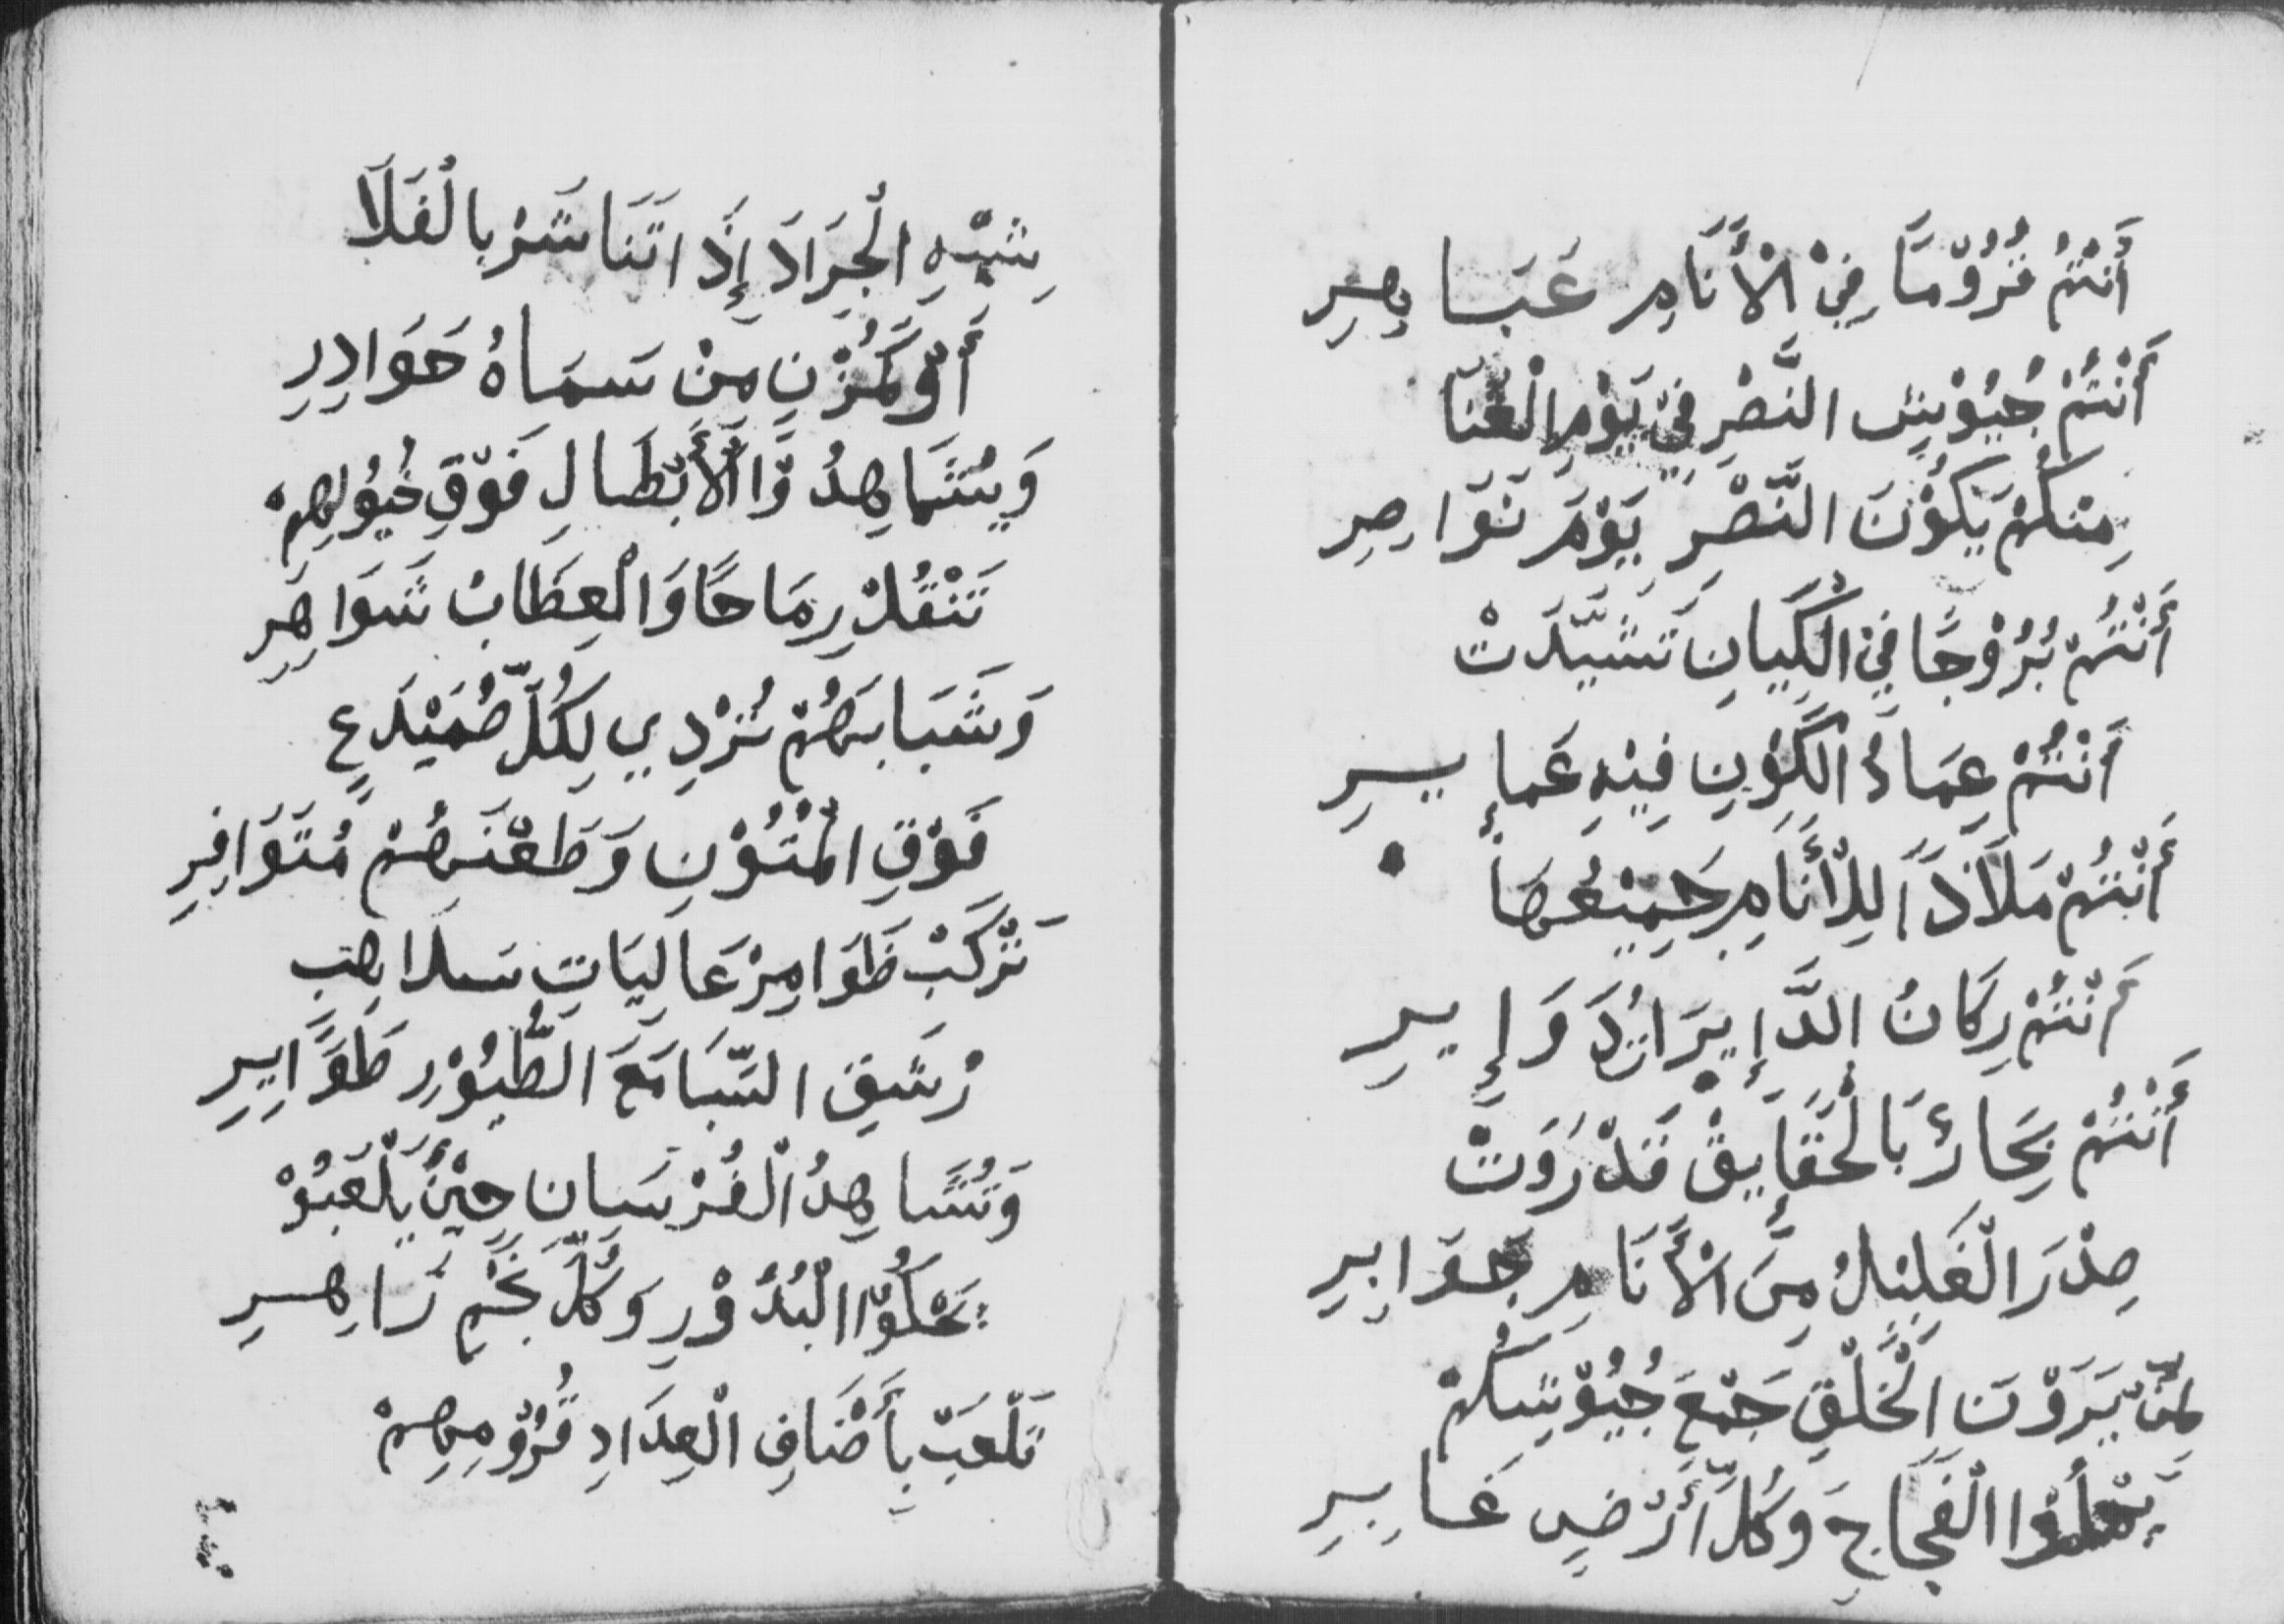 أَنْتُمْ قُرُوْمًا فِيْ الْأَنَامِ عَبَاهِرِ
أَنْتُمْ جُيُوْشِ النَّصْرِ فِيْ يَوْمِ الْعَنَا
مِنْكُمْ يَكُوْنَ النَّصْرِ يَوْمَ نَوَاصِرِ
أَنْتُمْ بُرُوْجًا فِيْ الْكِيَانِ تَشَيَّدَتْ
أَنْتُمْ عِمَادُ الْكَوْنِ فِيْهِ عَمإيِرِ
أَنْتُمْ مَلَاذَاً لِلْأَنَامِ جَمِيْعُهَا
أَنْتُمْ رِكَانُ الدَّإيِرَاتُ دَوَإيِرِ
أَنْتُمْ بِحَارٌ بَالْحَقَايِقْ قَدْ رَوَتْ
صِدْرَ الْغَلِيْلُ مِنَ الْأَنَامِ جوَابِرِ
لِمَّ يَرَوْنَ الْخَلْقِ جَمْعَ جُيُوْشِكُمْ
الْفَجَاجِ وَكُلَّ أَرْضٍ غَابِرِ
شِبْهِ الْجِرَادَ إِذَ اتَنَاشَرُ بِالْفَلَا
أَوْ كَمُزْنِ مِنْ سَمَاهُ حَوَادِرِ
وَيُشَاهِدُوْا الْأَبْطَالِ فَوْقِ خُيُوْلِهِمْ
تَنْقُلْ رِمَاحًا وَالْعِطَابْ شَوَاهِرِ
وَشَبَابَهُمْ تُرْدِي لِكُلِّ صُمَيْدَعٍ
فَوْقِ الْمُتُوْنِ وَطَعْنَهُمْ مُتَوَافِرِ
تَرْكَبْ ظَوَامِرْ عَالِيَاتِ سَلَاهِبِ
رْشَيقِ السِّبَا مَعَ الطُّيُوْرِ طَوَايِرِ
وَتُشَاهِدُ الْفُرْسَانِ حِيْنَ يَلْعَبُوْ
يَحْكُوْا الْبُدُوْرِ وَكُلِّ نَجْمٍ زَاهِرِ
تَلْعَبْ بِأَضْنَافِ الْعِدَادِ قُرُوْمِهِمْ